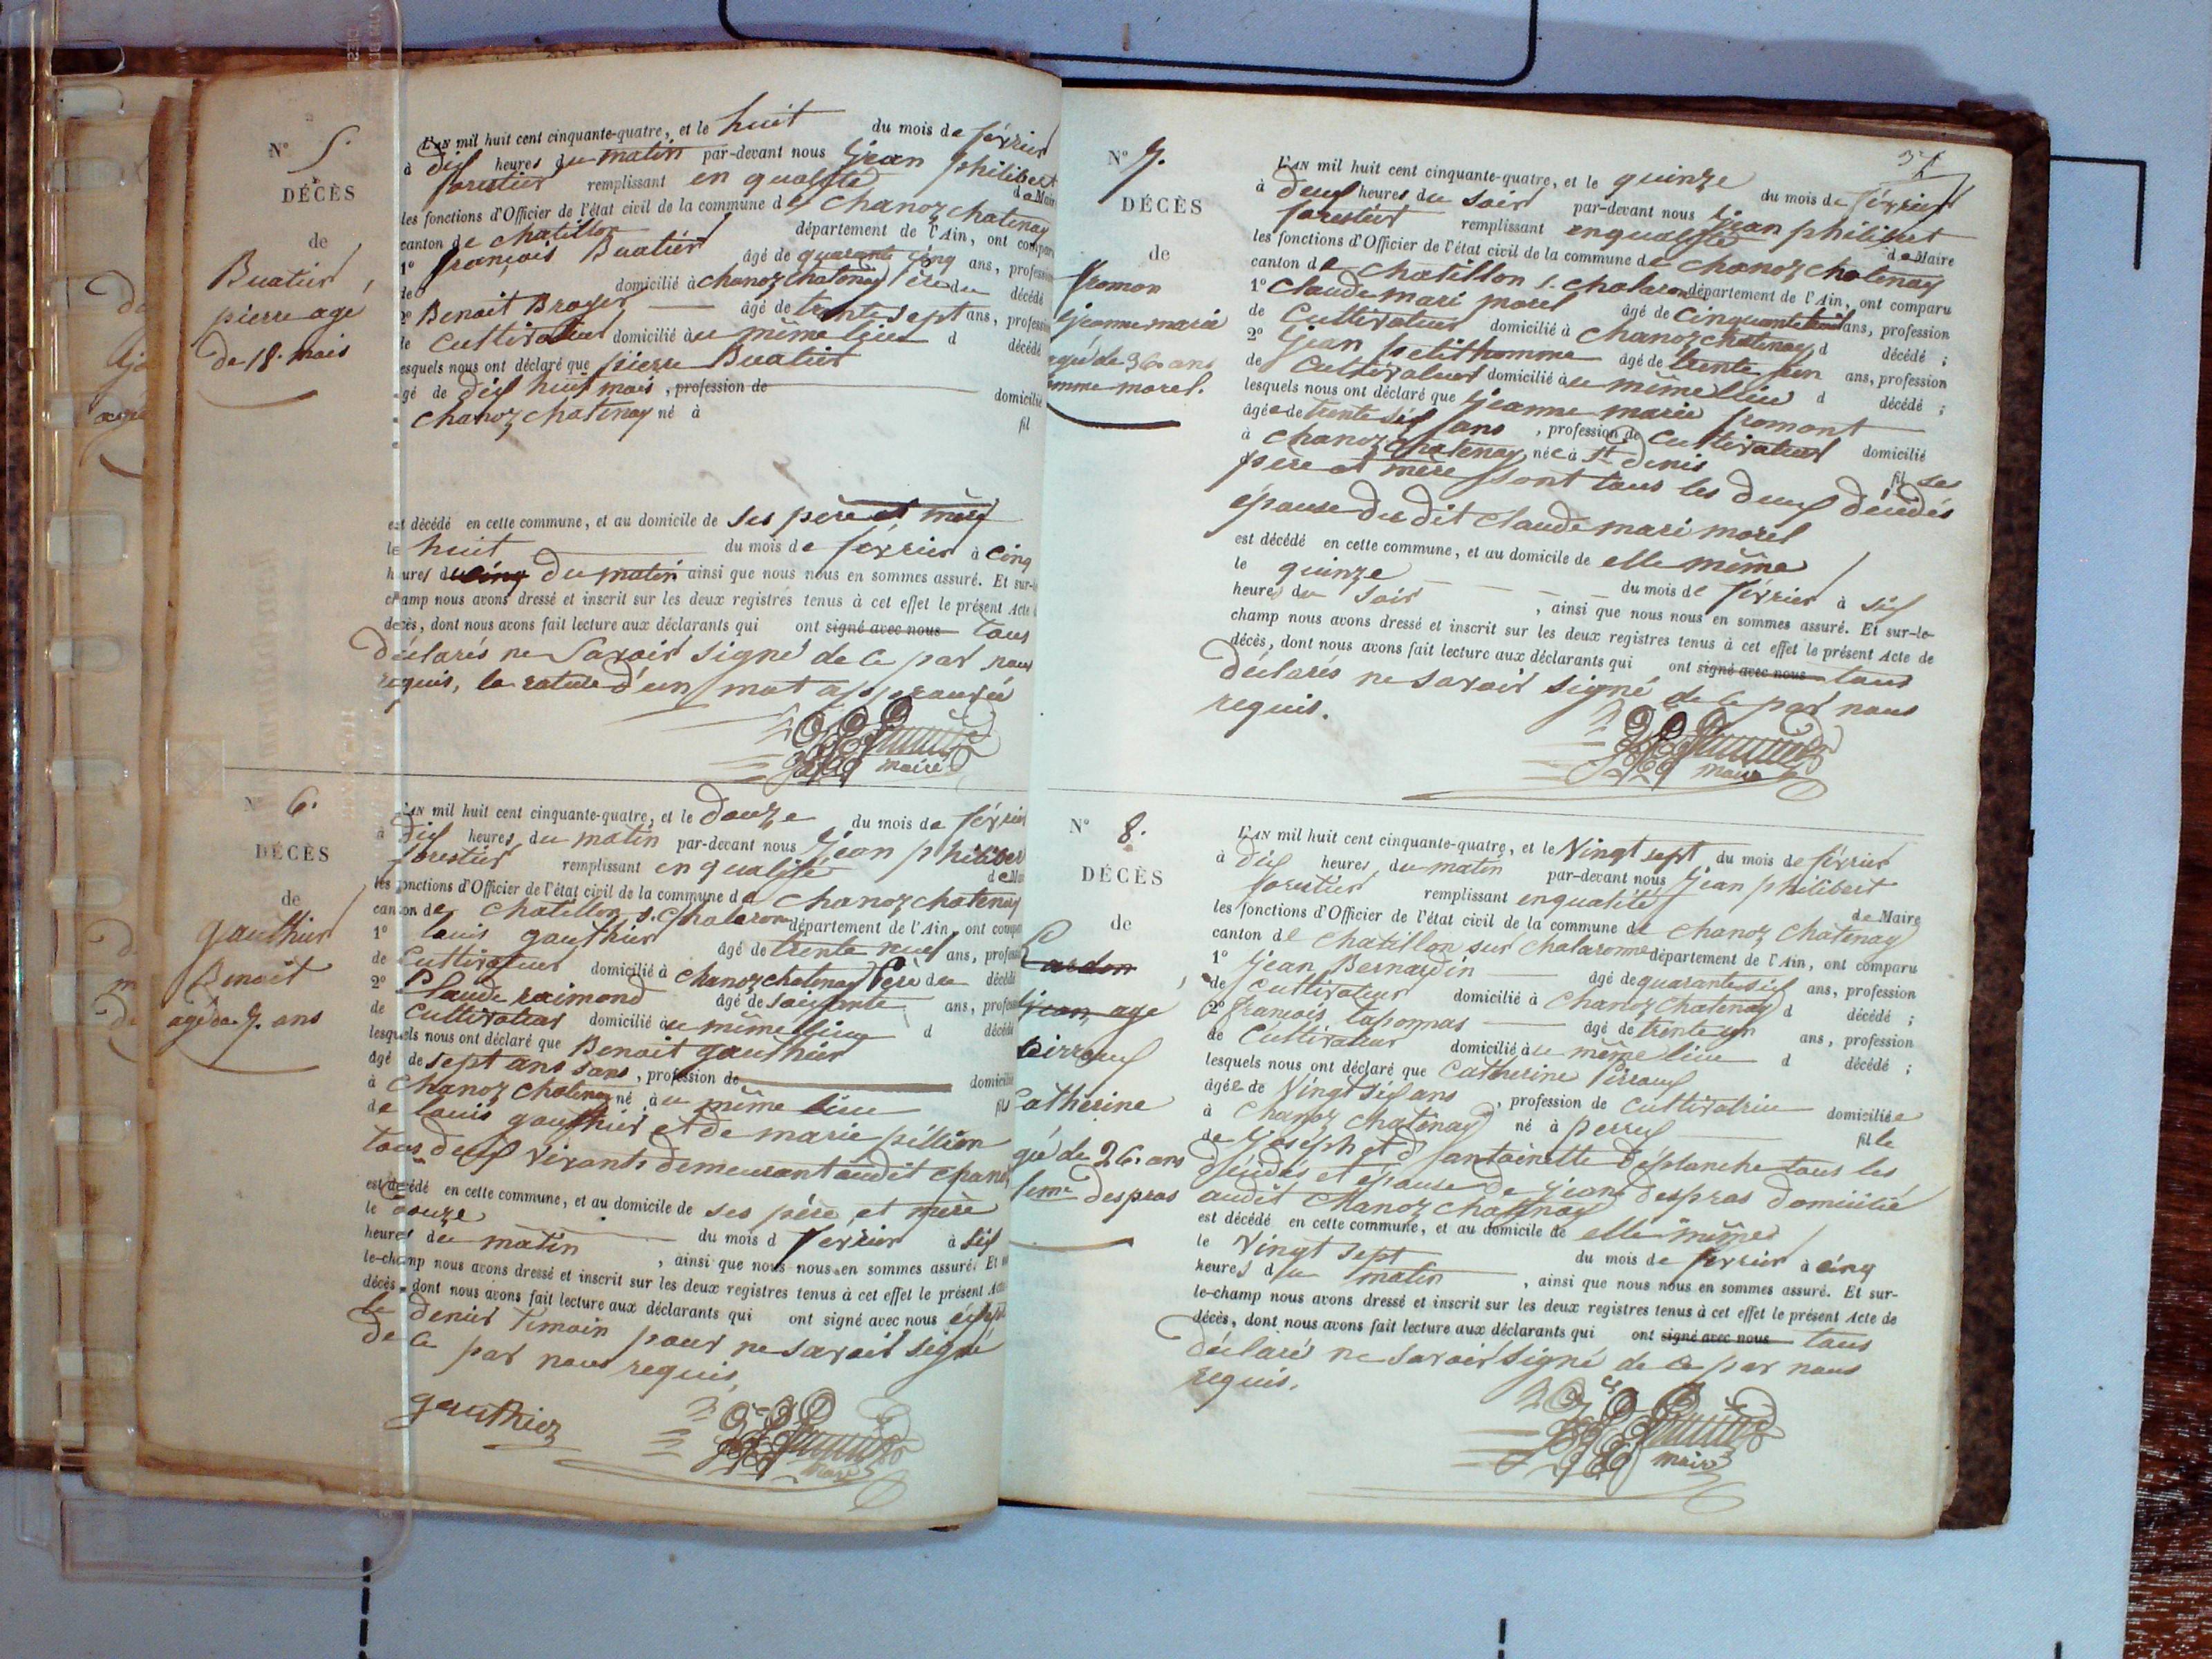 N° 5.
DÉCÈS
de
Buatier
pierre agé
de 18. mois
L'AN mil huit cent cinquante-quatre, et le huit du mois de février
à dix heures du matin par-devant nous Jean philibert
forestier remplissant en qualité de Maire
les fonctions d'Officier de l'état civil de la commune de Chanoz chatenay
canton de chatillon département de l'Ain, ont comparu
1° françois Buatier âgé de quarante cinq ans, profession
de domicilié à chanoz chatenay père du décédé
2° Benoit Broyer âgé de trente sept ans, profession
de cultivateur domicilié au même lieu d décédé
lesquels nous ont déclaré que pierre Buatier
âgé de dix huit mois, profession de domicilié
chanoz chatenay né à fil
est décédé en cette commune, et au domicile de ses père et mère
le huit du mois de février à cinq
heures du cinq du matin ainsi que nous nous en sommes assuré. Et sur-le-
champ nous avons dressé et inscrit sur les deux registres tenus à cet effet le présent Acte
décès, dont nous avons fait lecture aux déclarants qui ont signé avec nous tous
déclarés ne savoir signé de ce par nous
requis, la rature d'un mot approuvée
maire
N° 6.
DÉCÈS
de
gauthier
Benoit
agé de 7. ans
L'AN mil huit cent cinquante-quatre, et le douze du mois de février
à dix heures du matin par-devant nous Jean philibert
forestier remplissant en qualité de Maire
les fonctions d'Officier de l'état civil de la commune de chanoz chatenay
canton de chatillon s. chalaronne département de l'Ain, ont comparu
1° louis gauthier âgé de trente neuf ans, profession
de cultivateur domicilié à chanoz chatenay Père du décédé
2° Claude raimond âgé de soixante ans, profession
de cultivateur domicilié au même lieu d décédé
lesquels nous ont déclaré que Benoit gauthier
âgé de sept ans sans, profession de domicilié
à chanoz chatenay né au même lieu fils
de louis gauthier et de marie pillion
tous deux vivants demeurant audit chanoz
est décédé en cette commune, et au domicile de ses père et mère
le douze du mois d février à six
heures du matin, ainsi que nous nous en sommes assuré. Et sur
le-champ nous avons dressé et inscrit sur les deux registres tenus à cet effet le présent Acte
décès dont nous avons fait lecture aux déclarants qui ont signé avec nous excepté
le denier témoin pour ne savoir signé
de ce par nous requis,
gauthier
maire
N° 7.
DÉCÈS
de
fromon
Jeanne marie
agé de 36 ans
femme morel.
L'AN mil huit cent cinquante-quatre, et le quinze du mois de février
à deux heures du soir par-devant nous Jean philibert
forestier remplissant en qualité de Maire
les fonctions d'Officier de l'état civil de la commune de chanoz chatenay
canton de chatillon s. chalaronne département de l'Ain, ont comparu
1° claude mari morel âgé de cinquante huit ans, profession
de Cultivateur domicilié à chanoz chatenay d décédé ;
2° Jean petithomme âgé de trente un ans, profession
de Cultivateur domicilié au même lieu d décédé ;
lesquels nous ont déclaré que Jeanne marie fromont
âgée de trente six ans, profession de Cultivateur domicilié
à chanoz chatenay, née à St denis fil ses
père et mère sont tous les deux décédés
épouse du dit claude mari morel
est décédé en cette commune, et au domicile de elle même
le quinze du mois de février à six
heures du soir, ainsi que nous nous en sommes assuré. Et sur-le-
champ nous avons dressé et inscrit sur les deux registres tenus à cet effet le présent Acte de
décès, dont nous avons fait lecture aux déclarants qui ont signé avec nous tous
déclarés ne savoir signé de ce par nous
requis.
maire
N° 8.
DÉCÈS
de
Cardon
Jean, age
Pirroux
Catherine
agé de 26. ans
feme despras
L'AN mil huit cent cinquante-quatre, et le Vingt sept du mois de février
à dix heures du matin par-devant nous Jean philibert
forestier remplissant en qualité de Maire
les fonctions d'Officier de l'état civil de la commune de chanoz chatenay
canton de chatillon sur chalaronne département de l'Ain, ont comparu
1° Jean Bernardin âgé de quarante six ans, profession
de cultivateur domicilié à chanoz chatenay d décédé ;
2° françois taponnas âgé de trente un ans, profession
de cultivateur domicilié au même lieu d décédé ;
lesquels nous ont déclaré que Catherine Pirroux
âgée de Vingt six ans, profession de cultivatrice domiciliée
à chanoz chatenay né à perrex fille
de Joseph et d antoinette Déplanche tous les
décédés et épouse de Jean despras domicilié
audit chanoz chatenay
est décédé en cette commune, et au domicile de elle même
le Vingt sept du mois de février à cinq
heures du matin, ainsi que nous nous en sommes assuré. Et sur-
le-champ nous avons dressé et inscrit sur les deux registres tenus à cet effet le présent Acte de
décès, dont nous avons fait lecture aux déclarants qui ont signé avec nous tous
déclaré ne savoir signé de ce par nous
requis.
maire